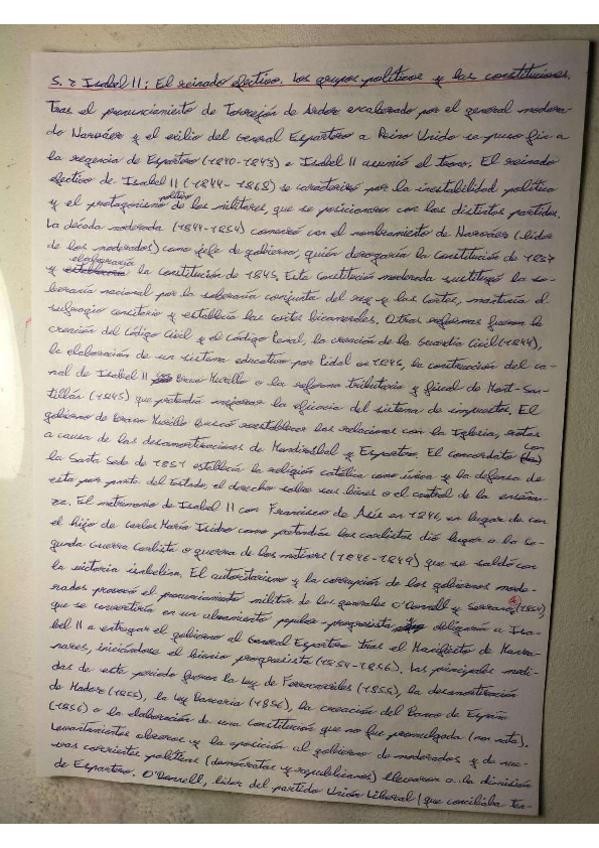 5.2 Isabel II: El reinado efectivo. Los grupos políticos y las constituciones.
Tras el pronunciamiento de Torrejón de Ardoz encabezado por el general modera-
do Narváez y el exilio del General Espartero a Reino Unido se puso fin a
la regencia de Espartero (1840-1843) e Isabel II asumió el trono. El reinado
efectivo de Isabel II (1844-1868) se caracterizó por la inestabilidad política
y el protagonismo político de los militares, que se posicionaron con los distintos partidos.
La década moderada (1844-1854) comenzó con el nombramiento de Narváez (líder
de los moderados) como jefe de gobierno, quién derogaría la Constitución de 1837
y elaboraría la Constitución de 1845. Esta Constitución moderada sustituyó la so-
beranía nacional por la soberanía conjunta del rey y las Cortes, mantenía el
sufragio censitario y establecía las cortes bicamerales. Otras reformas fueron la
creación del Código Civil y el Código Penal, la creación de la Guardia Civil (1844),
la elaboración de un sistema educativo por Pidal en 1845, la construcción del ca-
nal de Isabel II Bravo Murillo o la reforma tributaria y fiscal de Mont-San-
tillán (1845) que pretendía mejorar la eficacia del sistema de impuestos. El
gobierno de Bravo Murillo buscó restablecer las relaciones con la Iglesia, rotas
a causa de las desamortizaciones de Mendizábal y Espartero. El Concordato con
la Santa Sede de 1851 establecía la religión católica como única y la defensa de
esta por parte del Estado, el derecho sobre sus bienes o el control de la enseñan-
za. El matrimonio de Isabel II con Francisco de Asís en 1846, en lugar de con
el hijo de Carlos María Isidro como pretendían los carlistas dió lugar a la Se-
gunda Guerra Carlista o guerra de los matiners (1846-1849) que se saldó con
la victoria isabelina. El autoritarismo y la corrupción de los gobiernos mode-
rados provocó el pronunciamiento militar de los generales O'Donnell y Serrano (1854),
que se convertiría en un alzamiento popular-progresista obligarían a Isa-
bel II a entregar el gobierno al General Espartero tras el Manifiesto de Manza-
nares, iniciándose el bienio progresista (1854-1856). Las principales medi-
das de este periodo fueron la Ley de Ferrocarriles (1855), la desamortización
de Madoz (1855), la Ley Bancaria (1856), la creación del Banco de España
(1856) o la elaboración de una Constitución que no fue promulgada (non nata).
Levantamientos obreros y la oposición al gobierno de moderados y de nue-
vas corrientes políticas (demócratas y republicanos) llevaron a la dimisión
de Espartero. O'Donnell, líder del partido Unión Liberal (que conciliaba ten-